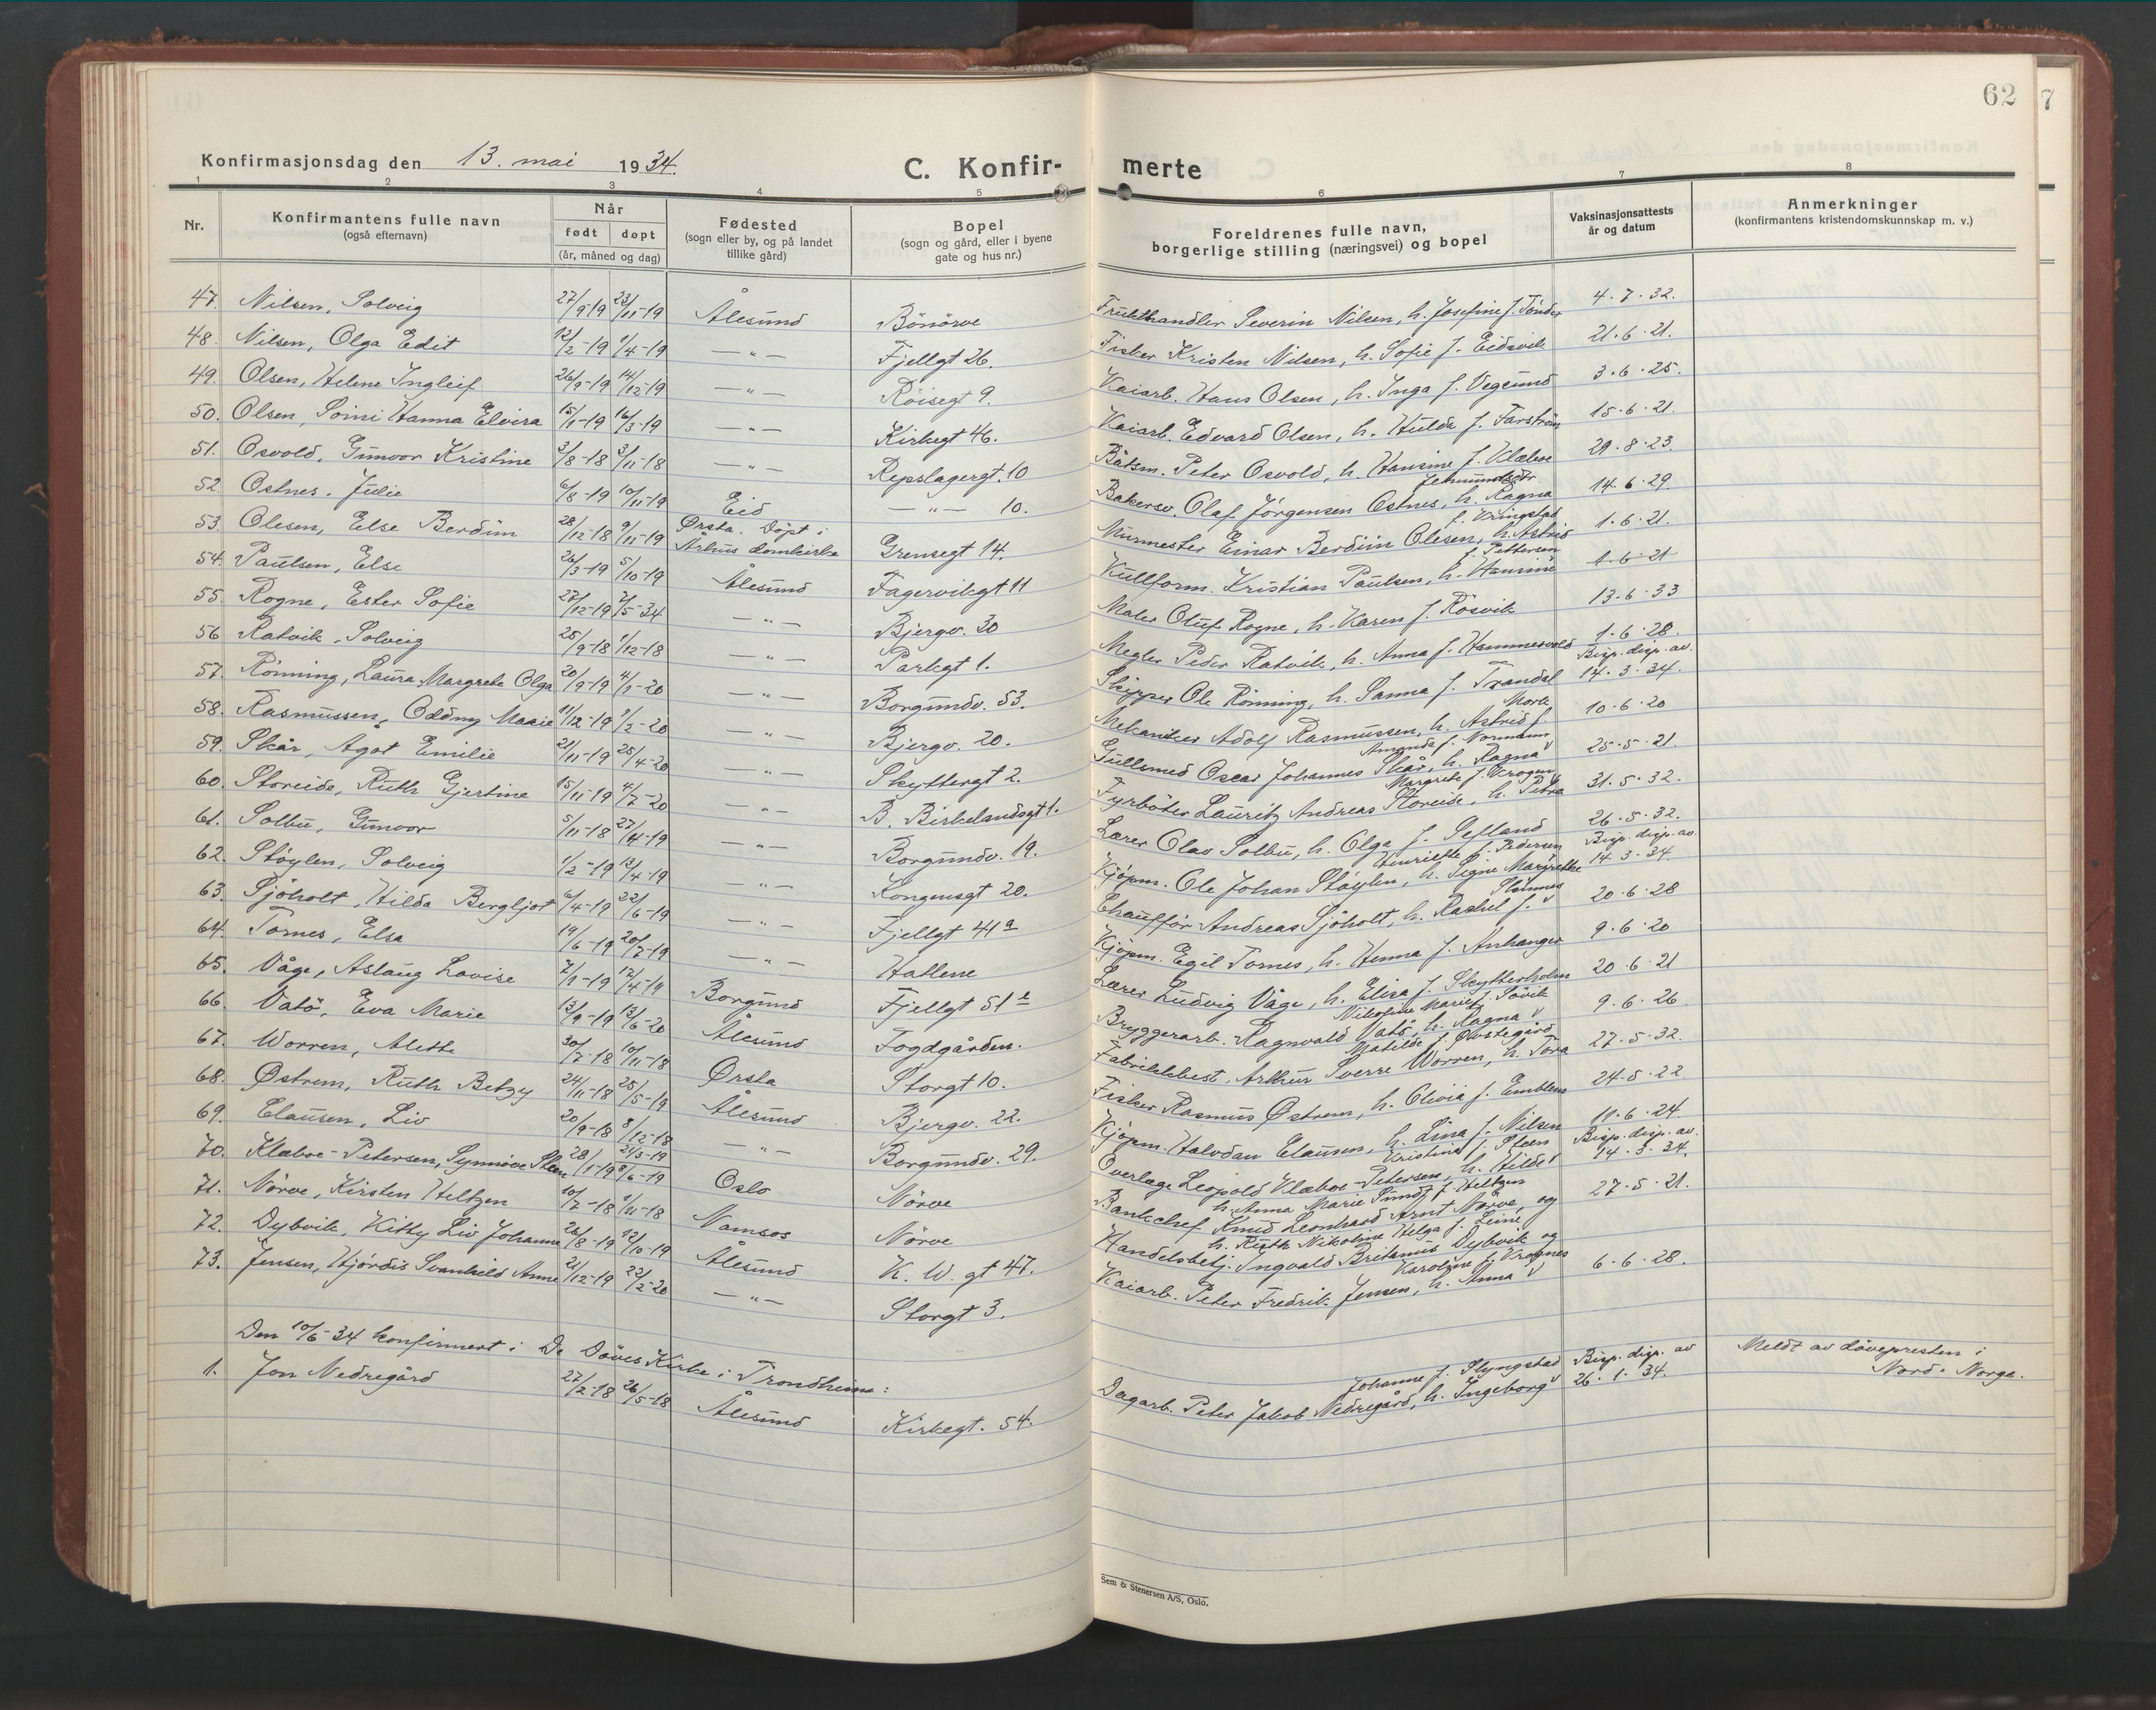 62
7
Konfirmasjonsdag den 13. mai 1934.
C. Konfir-
merte
1 2 3 4 5 6 7 8
Nr. Konfirmantens fulle navn (også efternavn) Når født døpt (år, måned og dag) Fødested (sogn eller by, og på landet tillike gård) Bopel (sogn og gård, eller i byene gate og hus nr.) Foreldrenes fulle navn, borgerlige stilling (næringsvei) og bopel Vaksinasjonsattests år og datum Anmerkninger (konfirmantens kristendomskunnskap m. v.)
47. Nilsen, Solveig 27/9-19 23/11-19 Ålesund Bönörve Frukthandler Severin Nilsen, h. Josefine f. Tönder 4.7.32.
48. Nilsen, Olga Edit 12/2-19 1/4-19 —"— Fjellgt 26. Fisker Kristen Nilsen, h. Sofie f. Eidsvik 21.6.21.
49. Olsen, Helene Ingleif 26/9-19 14/12-19 —"— Röisegt 9. Kaiarb. Hans Olsen, h. Inga f. Vegsund 3.6.25.
50. Olsen, Soini Hanna Elvira 15/1-19 16/3-19 —"— Kirkegt 46. Kaiarb. Edvard Olsen, h. Hulda f. Farström 15.6.21.
51. Osvold, Gunvor Kristine 3/8-18 3/11-18 —"— Repslagergt. 10 Båtsm. Peter Osvold, h. Hansine f. Klæboe 29.8.23.
52 Ostnes, Julie 6/8-19 10/11-19 Eid —"— 10. Bakersv. Olaf Jörgensen Ostnes, h. Ragna 14.6.29.
53. Olesen, Else Berdiin 28/12-18 9/11-19 Ørsta. Döpt i Århus domkirke Grensegt 14. Murmester Einar Berdiin Olesen, h. Astrid f. Kringstad 1.6.21.
54. Paulsen, Else 26/3-19 5/10-19 Ålesund Fagervikgt 11 Kullform. Kristian Paulsen, h. Hansine f. Pettersen 1.6.21
55. Rogne, Ester Sofie 27/12-19 2/5-34 —"— Bjergv. 30 Maler Oluf Rogne, h. Karen f. Rösvik 13.6.33
56 Ratvik, Solveig 25/9-18 1/12-18 —"— Parkgt 1. Megler Peder Ratvik, h. Anna f. Hammersvold 1.6.28.
57. Rönning, Laura Margrete Olga 20/9-19 4/1-20 —"— Borgundv. 53. Skipper Ole Rönning, h. Sanna f. Trandal Bisp. disp. av. 14.3.34.
58. Rasmussen, Oddny Maaie 11/12-19 1/2-20 —"— Bjergv. 20. Mekaniker Adolf Rasmussen, h. Astrid f. Mork 10.6.20
59. Skår, Ågot Emilie 21/11-19 25/4-20 —"— Skyttergt 2. Gullsmed Oscar Johannes Skår, h. Ragna Amanda f. Normann 25.5.21.
60. Storeide, Ruth Gjertine 15/11-19 4/7-20 —"— B. Birkelandsgt 1. Fyrböter Lauritz Andreas Storeide, h. Petra Margrete f. Krogen 31.5.32.
61. Solbu, Gunvor 5/11-18 27/4-19 —"— Borgundv. 19. Lærer Olav Solbu, h. Olga f. Sefland 26.5.32.
62. Stöylen, Solveig 1/2-19 13/4-19 —"— Kongensgt 20. Kjöpm. Ole Johan Stöylen, h. Signe Margrethe Henriette f. Pedersen Bisp. disp. av. 14.3.34.
63. Sjöholt, Hilda Bergljot 6/4-19 22/6-19 —"— Fjellgt 41a Chaufför Andreas Sjöholt, h. Rachel f. Slinnes 20.6.28
64. Tornes, Elsa 19/6-19 20/7-19 —"— Hallene Kjöpm. Egil Tornes, h. Henna f. Anhanger 9.6.20
65. Våge, Aslaug Lovise 7/1-19 17/4-19 Borgund Fjellgt 51e Lærer Ludvig Våge, h. Elisa f. Skytterholm 20.6.21
66. Vatö, Eva Marie 13/9-19 13/6-20 Ålesund Fogdgården. Bryggerarb. Ragnvald Vatö, h. Ragna Nikoline Marie f. Sövik 9.6.26.
67. Worren, Alette 30/7-18 10/11-18 Ørsta Storgt 10. Fabrikkbest. Arthur Sverre Worren, h. Tora Matilde f. Øvstegård 27.5.32.
68. Østrem, Ruth Betzy 24/11-18 25/5-19 Ålesund Bjergv. 22. Fisker Rasmus Østrem, h. Olivia f. Emblem 24.5.22
69. Clausen, Liv 20/9-18 8/12-18 —"— Borgundv. 29. Kjöpm. Halvdan Clausen, h. Lina f. Nilsen 11.6.24.
70. Klæboe-Petersen, Synnöve Steen 28/1-19 8/6-19 Oslo Nörve Overlæge Leopold Klæboe-Petersen, h. Hilda Kristina f. Steen Bisp. disp. av. 14.3.34.
71. Nörve, Kirsten Heltzen 10/7-18 1/11-18 Namsos Nörve Bankchef Knud Leonhard Arnt Nörve, og h. Anna Marie Sund f. Heltzen 27.5.21.
72. Dybvik, Kitty Liv Johanne 26/8-19 12/10-19 Ålesund K. W. gt 47. Handelsbetj. Ingvald Britanus Dybvik og h. Ruth Nikoline Helga f. Leine
73. Jensen, Hjördis Svanhild Anne 21/12-19 22/2-20 —"— Storgt 3. Kaiarb. Peter Fredrik Jensen, h. Anna Karoline f. Krognes 6.6.28.
Den 10/6-34 konfirmert i De Döves Kirke i Trondheim:
1. Jon Nedregård 27/2-18 26/5-18 Ålesund Kirkegt. 54. Dagarb. Peter Jakob Nedregård, h. Ingeborg Johanne f. Slyngstad Bisp. disp. av 26.1.34. Meldt av døvepresten i Nord-Norge.
Sem & Stenersen A/S, Oslo.